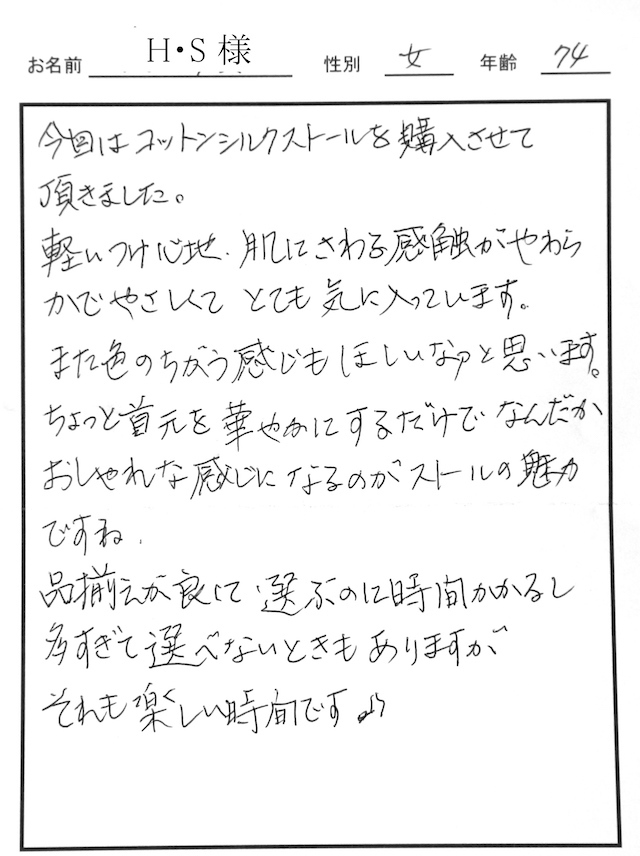 お名前 H・S 様 性別 女 年齢 74
今回はコットンシルクストールを購入させて
頂きました。
軽いつけ心地、肌にさわる感触がやわら
かでやさしくて とても気に入っています。
また色のちがう感じもほしいなァと思います。
ちょっと首元を華やかにするだけでなんだか
おしゃれな感じになるのがストールの魅力
ですね、
品揃えが良くて選ぶのに時間かかるし
多すぎて選べないときもありますが
それも楽しい時間です♪